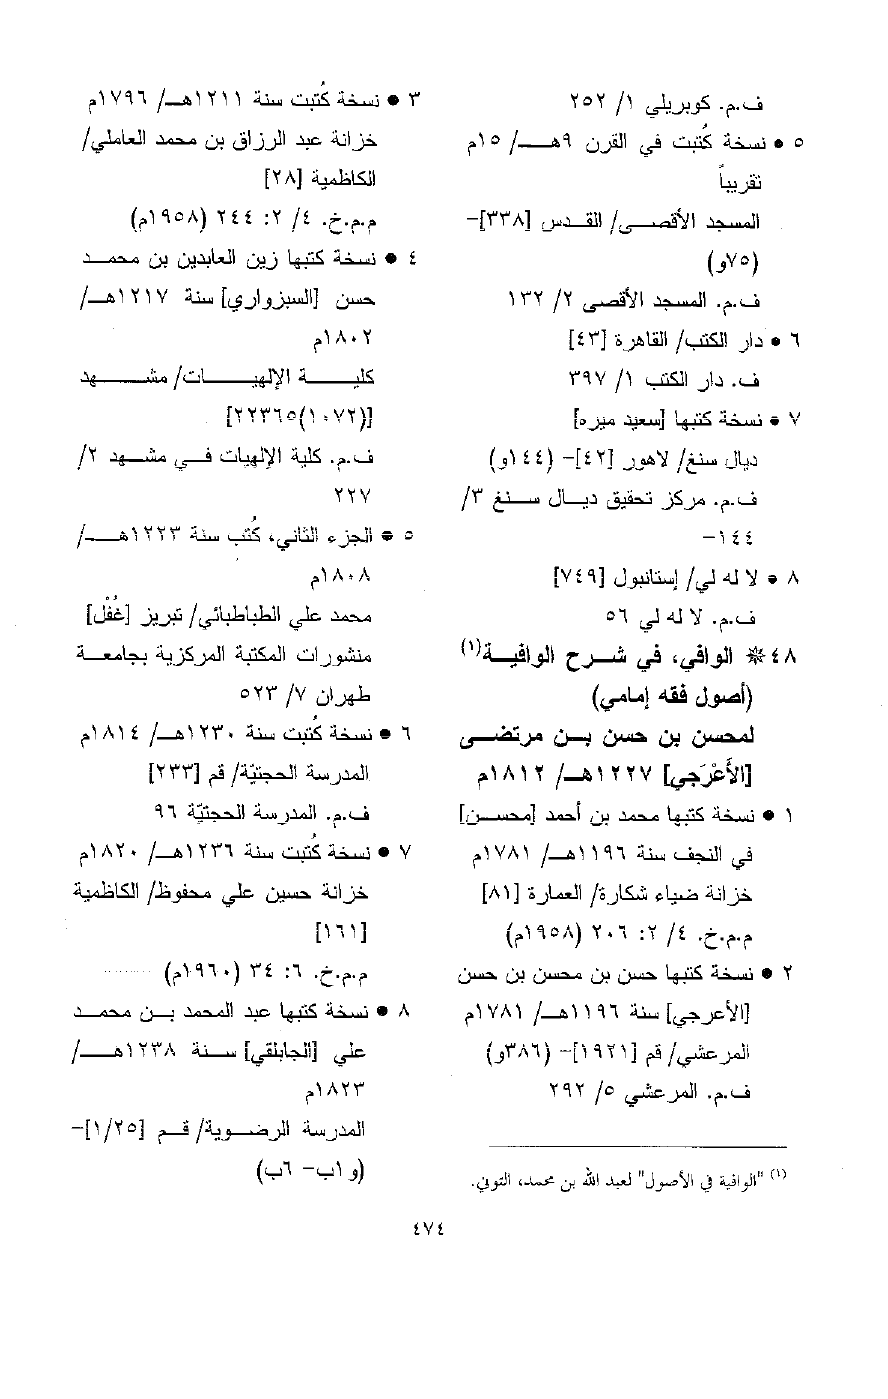 ف.م. كوبريلي ١/ ٢٥٢
٥ • نسخة كُتبت في القرن ٩هـ/ ١٥م
تقريباً
المسجد الأقصى/ القدس [٣٣٨]-
(٧٥و)
ف.م. المسجد الأقصى ٢/ ١٣٢
٦ • دار الكتب/ القاهرة [٤٣]
ف. دار الكتب ١/ ٣٩٧
٧ • نسخة كتبها [سعيد ميره]
ديال سنغ/ لاهور [٤٢]- (١٤٤و)
ف.م. مركز تحقيق ديال سنغ ٣/
١٤٤-
٨ • لا له لي/ إستانبول [٧٤٩]
ف.م. لا له لي ٥٦
٤٨ ❊ الوافي، في شرح الوافية(١)
(أصول فقه إمامي)
لمحسن بن حسن بن مرتضى
[الأَعْرَجي] ١٢٢٧هـ/ ١٨١٢م
١ • نسخة كتبها محمد بن أحمد [محسن]
في النجف سنة ١١٩٦هـ/ ١٧٨١م
خزانة ضياء شكارة/ العمارة [٨١]
م.م.خ. ٤/ ٢: ٢٠٦ (١٩٥٨م)
٢ • نسخة كتبها حسن بن محسن بن حسن
[الأعرجي] سنة ١١٩٦هـ/ ١٧٨١م
المرعشي/ قم [١٩٢١]- (٣٨٦و)
ف.م. المرعشي ٥/ ٢٩٢
(١) "الوافية في الأصول" لعبد الله بن محمد، التوني.
٣ • نسخة كُتبت سنة ١٢١١هـ/ ١٧٩٦م
خزانة عبد الرزاق بن محمد العاملي/
الكاظمية [٢٨]
م.م.خ. ٤/ ٢: ٢٤٤ (١٩٥٨م)
٤ • نسخة كتبها زين العابدين بن محمد
حسن [السبزواري] سنة ١٢١٧هـ/
١٨٠٢م
كلية الإلهيات/ مشهد
[(١٠٧٢)٢٢٣٦٥]
ف.م. كلية الإلهيات في مشهد ٢/
٢٢٧
٥ • الجزء الثاني، كُتب سنة ١٢٢٣هـ/
١٨٠٨م
محمد علي الطباطبائي/ تبريز [غُفْل]
منشورات المكتبة المركزية بجامعة
طهران ٧/ ٥٢٣
٦ • نسخة كُتبت سنة ١٢٣٠هـ/ ١٨١٤م
المدرسة الحجتيّة/ قم [٢٣٣]
ف.م. المدرسة الحجتيّة ٩٦
٧ • نسخة كُتبت سنة ١٢٣٦هـ/ ١٨٢٠م
خزانة حسين علي محفوظ/ الكاظمية
[١٦١]
م.م.خ. ٦: ٣٤ (١٩٦٠م)
٨ • نسخة كتبها عبد المحمد بن محمد
علي [الجابلقي] سنة ١٢٣٨هـ/
١٨٢٣م
المدرسة الرضوية/ قم [١/٢٥]-
(و ١ب- ٦ب)
٤٧٤